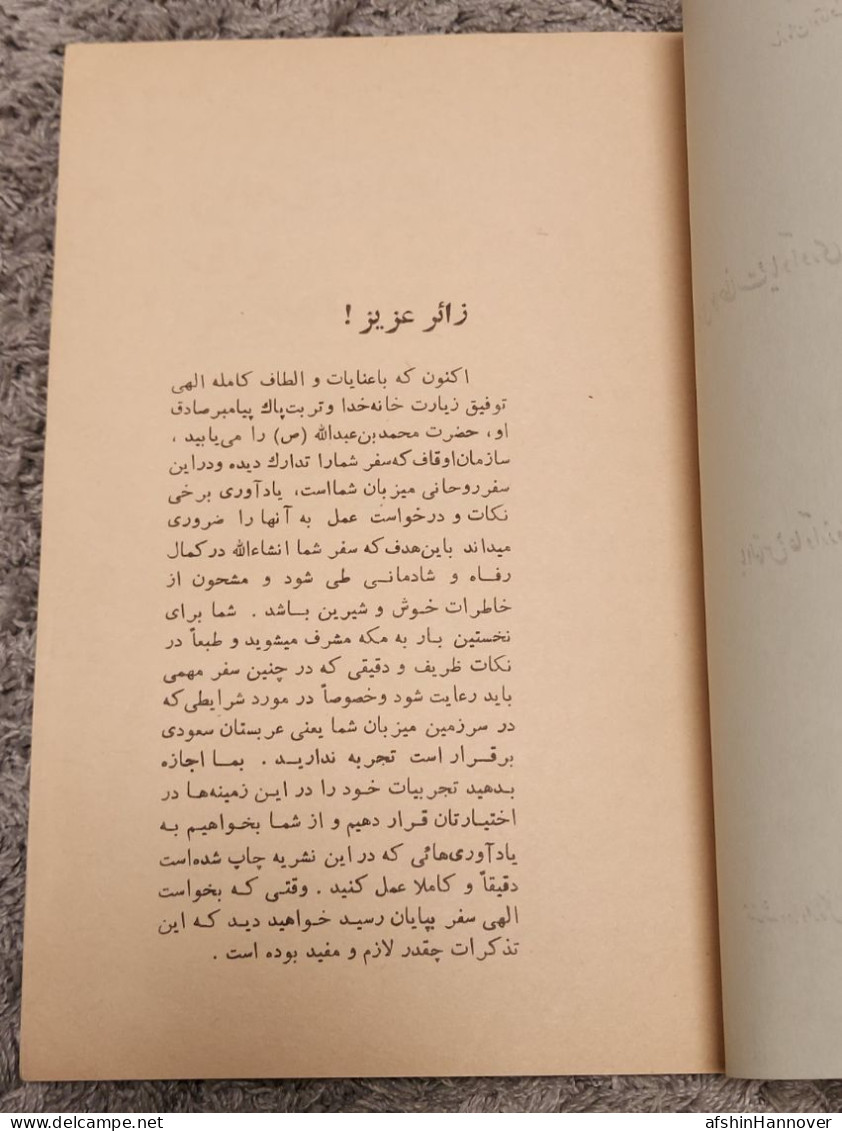 زائر عزیز !
اکنون که باعنایات و الطاف کامله الهی
توفیق زیارت خانه‌خدا و تربت‌پاك پیامبر‌صادق
او، حضرت محمدبن‌عبدالله (ص) را می‌یابید ،
سازمان‌اوقاف‌که‌سفر شمارا تدارك دیده ودراین
سفرروحانی میزبان شمااست، یادآوری برخی
نکات و درخواست عمل به آنها را ضروری
میداند باین‌هدف‌که سفر شما انشاءالله درکمال
رفاه و شادمانی طی شود و مشحون از
خاطرات خوش و شیرین باشد . شما برای
نخستین بار به مکه مشرف میشوید و طبعاً در
نکات ظریف و دقیقی که در چنین سفر مهمی
باید رعایت شود وخصوصاً در مورد شرایطی‌که
در سرزمین میزبان شما یعنی عربستان سعودی
برقرار است تجربه ندارید . بما اجازه
بدهید تجربیات خود را در این زمینه‌ها در
اختیارتان قرار دهیم و از شما بخواهیم به
یادآوری‌هائی که در این نشریه چاپ شده‌است
دقیقاً و کاملا عمل کنید . وقتی که بخواست
الهی سفر بپایان رسید خواهید دید که این
تذکرات چقدر لازم و مفید بوده است .
DELCAMPE.NET
afshinHannover